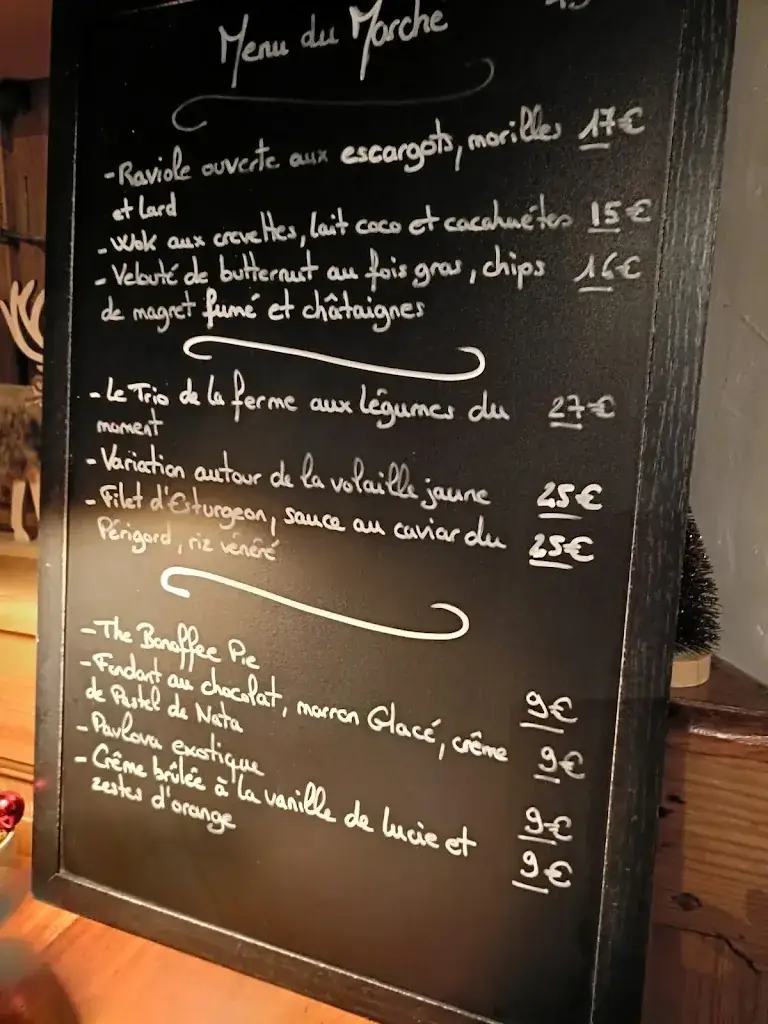 Menu du Marche
- Raviole ouverte aux escargots, morilles 17€
et Lard
- Wok aux crevettes, lait coco et cacahuétes 15€
- Velouté de butternut au fois gras, chips 16€
de magret fumé et châtaignes
- Le Trio de la ferme aux légumes du 27€
moment
- Variation autour de la volaille jaune 25€
- Filet d'Esturgeon, sauce au caviar du 25€
Périgord, riz vénéré
- The Banoffee Pie 9€
- Fondant au chocolat, marron Glacé, crême 9€
de Pastel de Nata
- Pavlova exotique 9€
- Crême brûlée à la vanille de Lucie et 9€
zestes d'orange